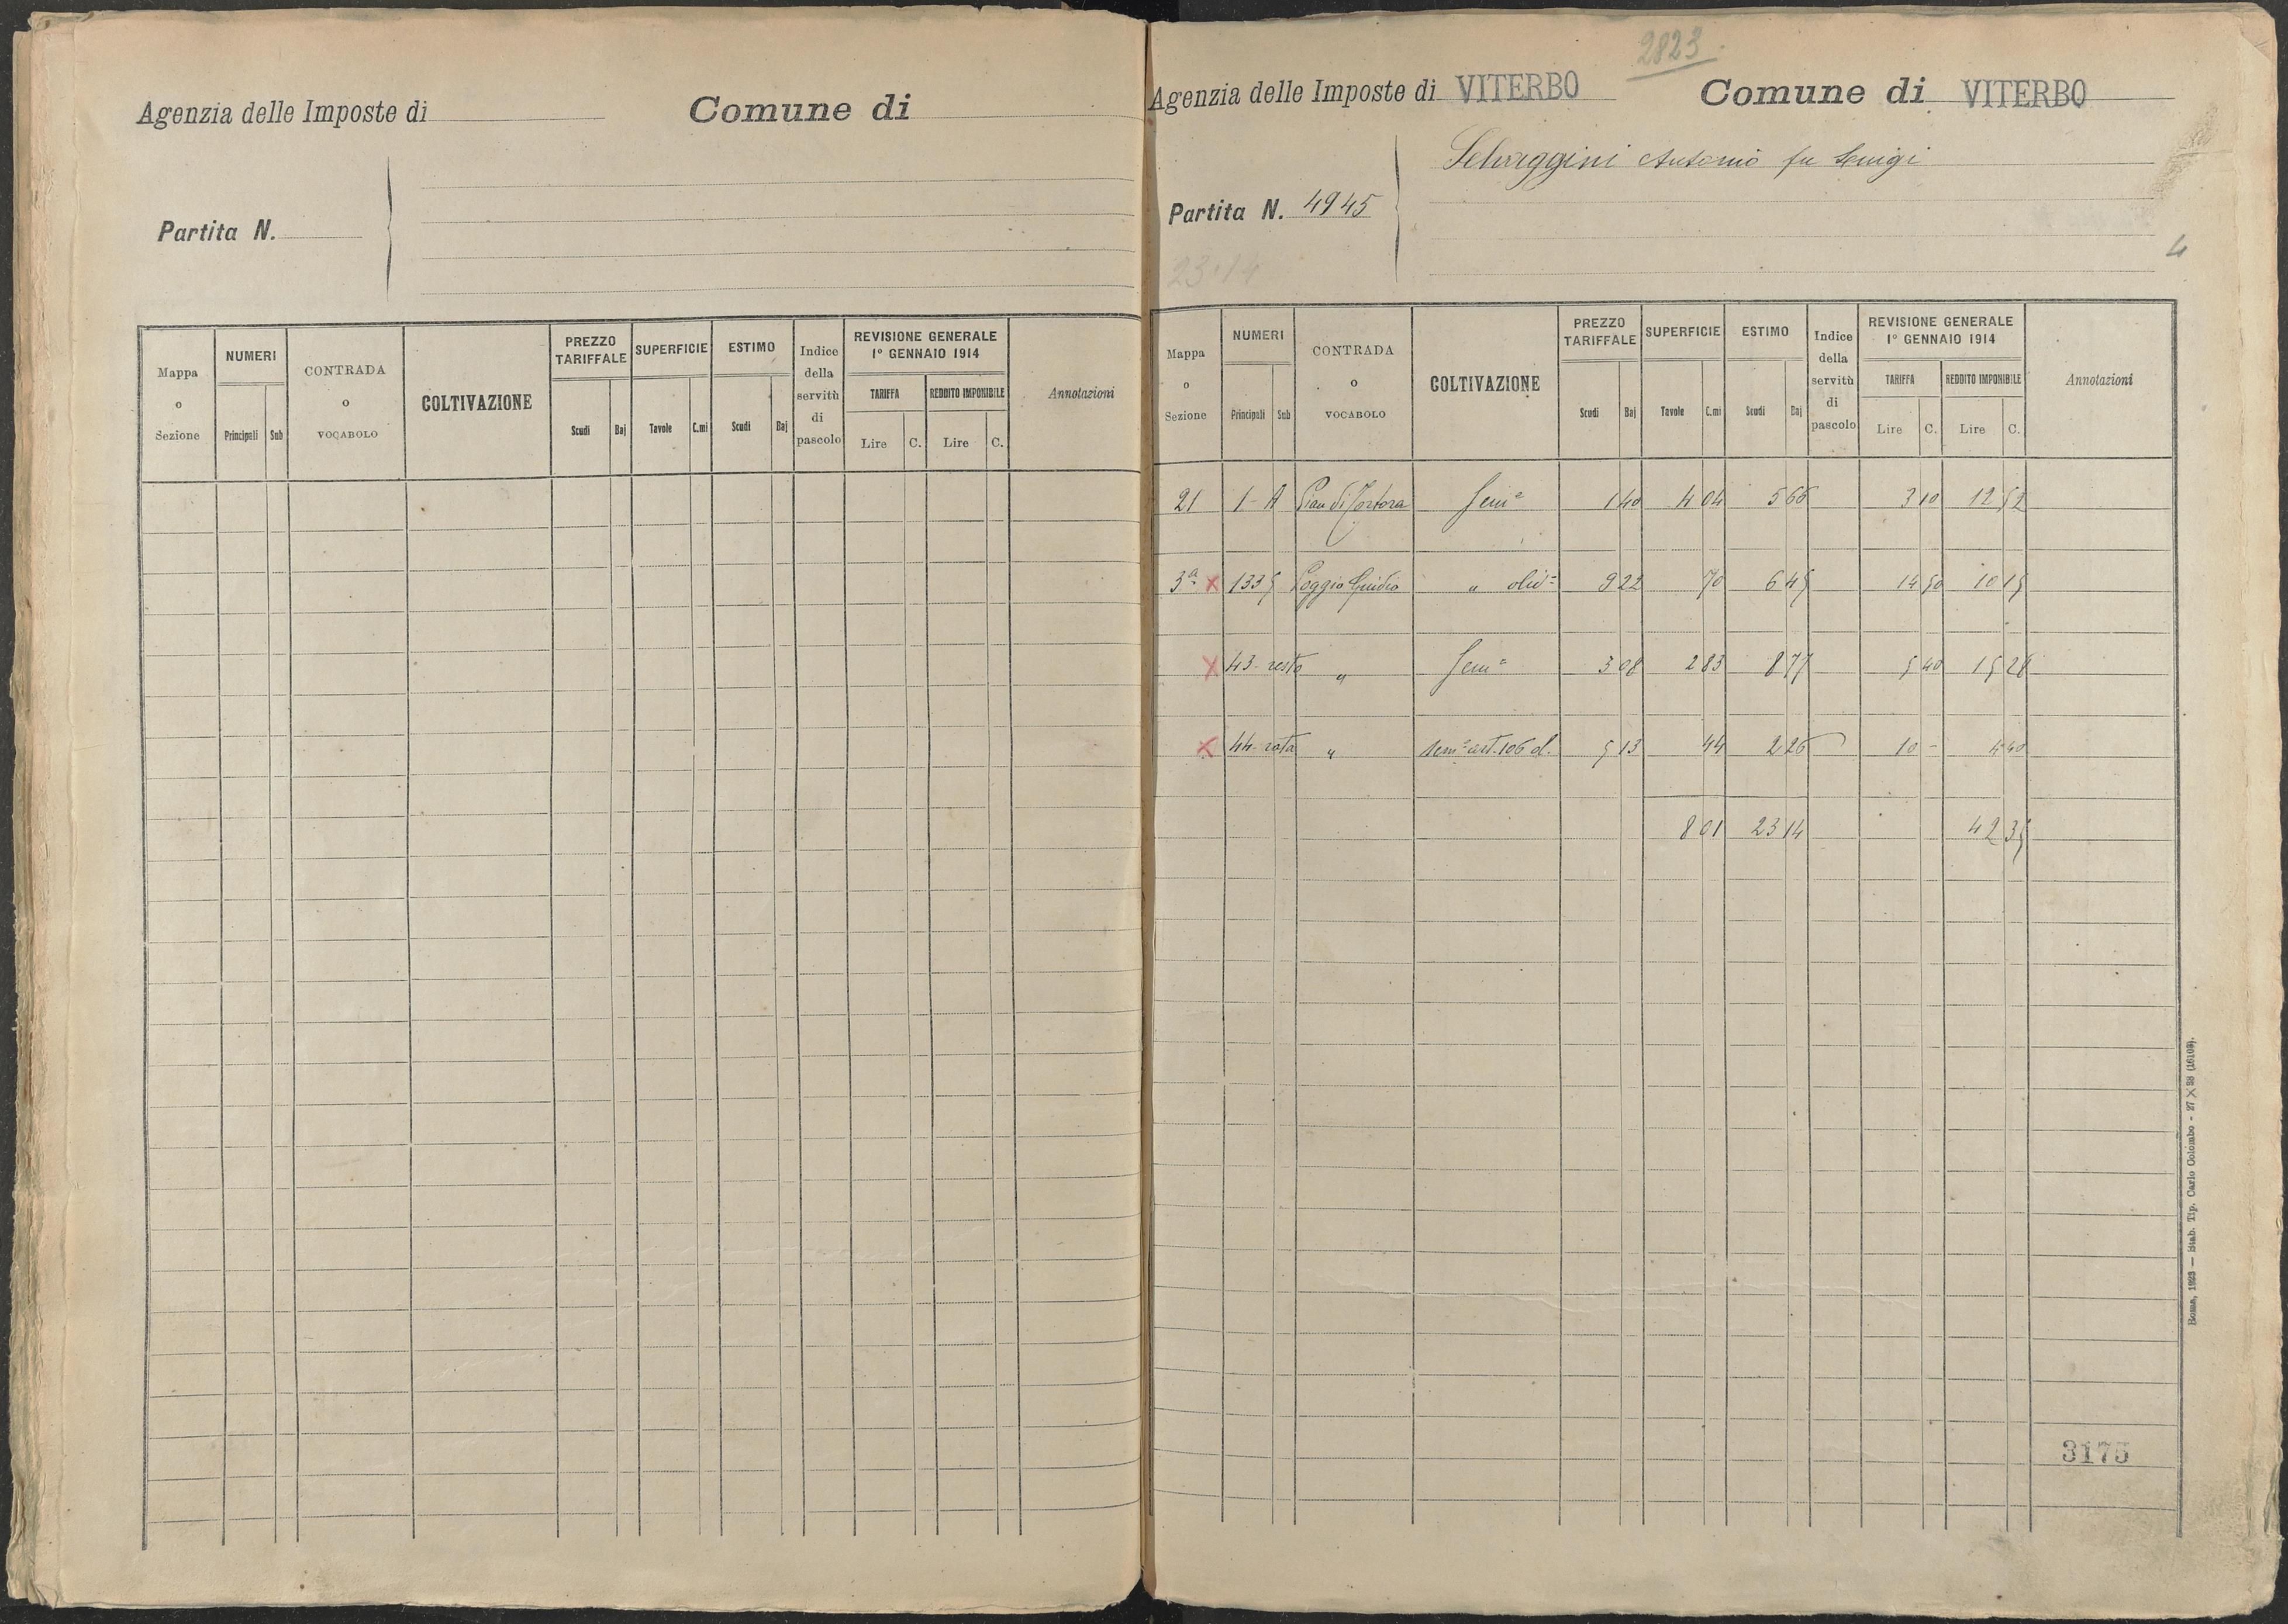 Agenzia delle Imposte di
Comune di
Partita N.
Mappa o Sezione
NUMERI
Principali Sub
CONTRADA o VOCABOLO
COLTIVAZIONE
PREZZO TARIFFALE
Scudi Baj
SUPERFICIE
Tavole C.mi
ESTIMO
Scudi Baj
Indice della servitù di pascolo
REVISIONE GENERALE
1° GENNAIO 1914
TARIFFA REDDITO IMPONIBILE
Lire C. Lire C.
Annotazioni
2823
Agenzia delle Imposte di VITERBO
Comune di VITERBO
Selvaggini Antonio fu Luigi
Partita N. 4945
23.14
4
Mappa o Sezione
NUMERI
Principali Sub
CONTRADA o VOCABOLO
COLTIVAZIONE
PREZZO TARIFFALE
Scudi Baj
SUPERFICIE
Tavole C.mi
ESTIMO
Scudi Baj
Indice della servitù di pascolo
REVISIONE GENERALE
1° GENNAIO 1914
TARIFFA REDDITO IMPONIBILE
Lire C. Lire C.
Annotazioni
21 1-A Pian di Tortora Sem° 1 40 4 04 5 66 3 10 12 52
3ª x 1335 Poggio Giudio " oliv° 9 22 70 6 45 14 50 10 15
x 43 resto " Sem° 3 08 2 83 8 77 5 40 15 28
x 44 rata " sem° art. 106 d. 5 13 44 2 26 10 - 4 40
8 01 23 14 42 35
3175
Roma, 1923 — Stab. Tip. Carlo Colombo - 27 X 23 (16109).